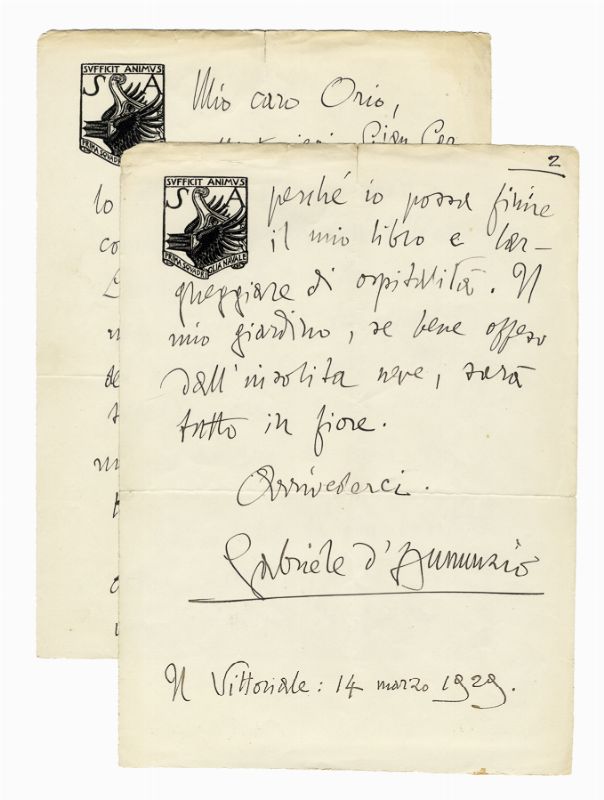 SVFFICIT ANIMVS
S A
PRIMA SQVADRIGLIA NAVALE
Mio caro Orio,
lo
co
2
SVFFICIT ANIMVS
S A
PRIMA SQVADRIGLIA NAVALE
perché io possa finire
il mio libro e lar-
gheggiare di ospitalità. Il
mio giardino, se bene offeso
dall'insolita neve, sarà
tutto in fiore.
Arrivederci.
Gabriele d'Annunzio
Il Vittoriale: 14 marzo 1929.